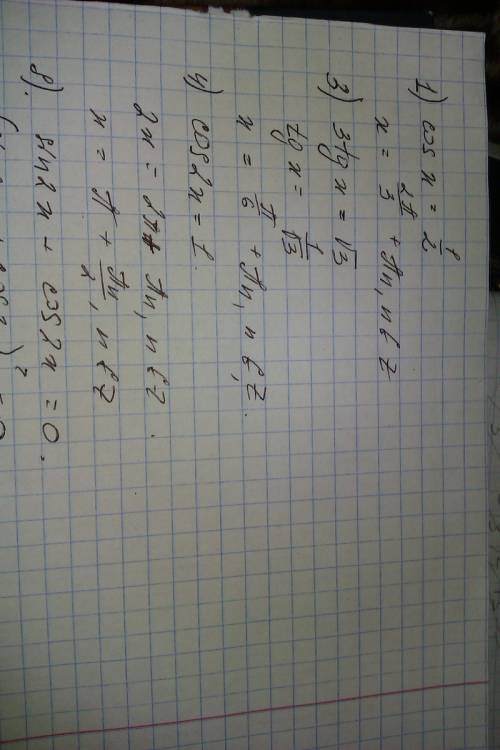 1) cos x = 1/2
x = 2π/3 + πn, n ∈ Z
3) 3tg x = √3
tg x = 1/√3
x = π/6 + πn, n ∈ Z.
4) cos2x = 1.
2x = 2π + πn, n ∈ Z.
x = π + πn/2, n ∈ Z
8). sin2x + cos2x = 0.